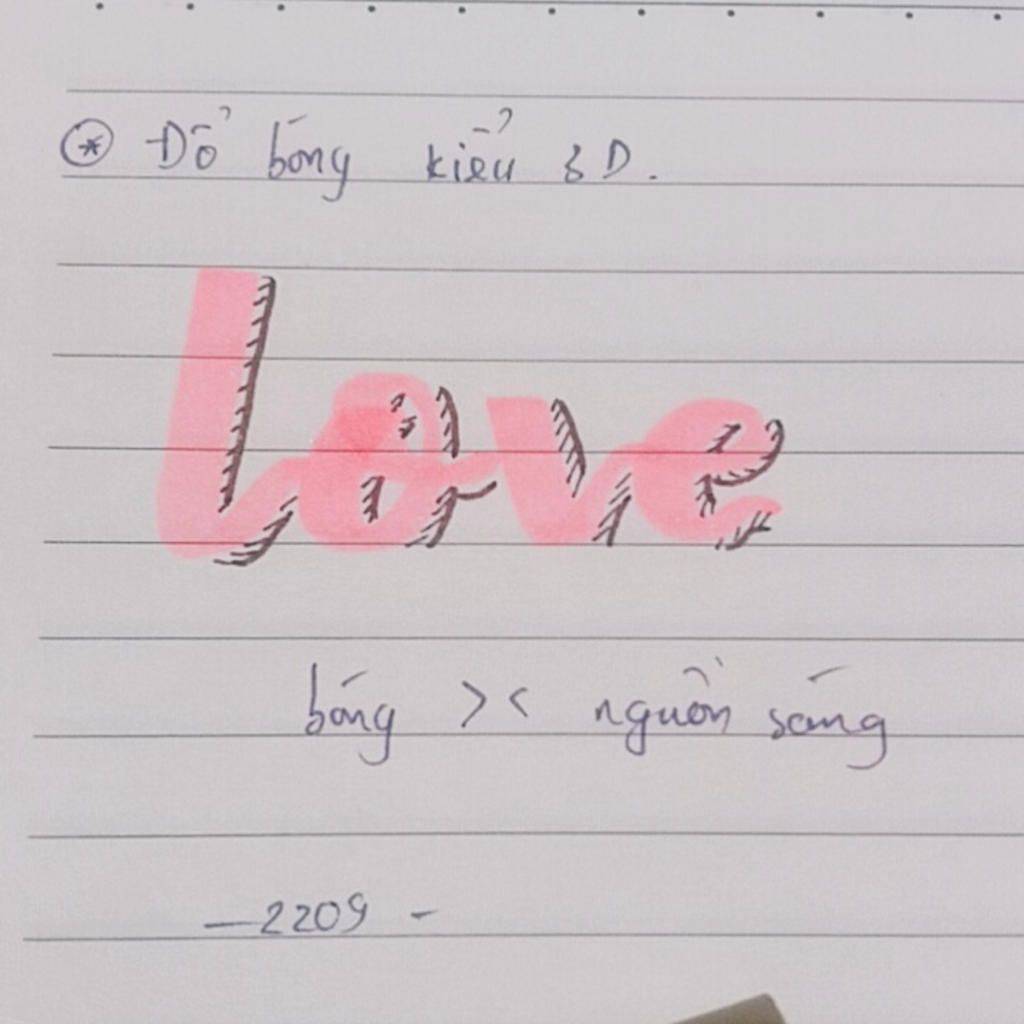 ⊛ Đổ bóng kiểu 3D.
love
bóng >< nguồn sáng
— 2209 -